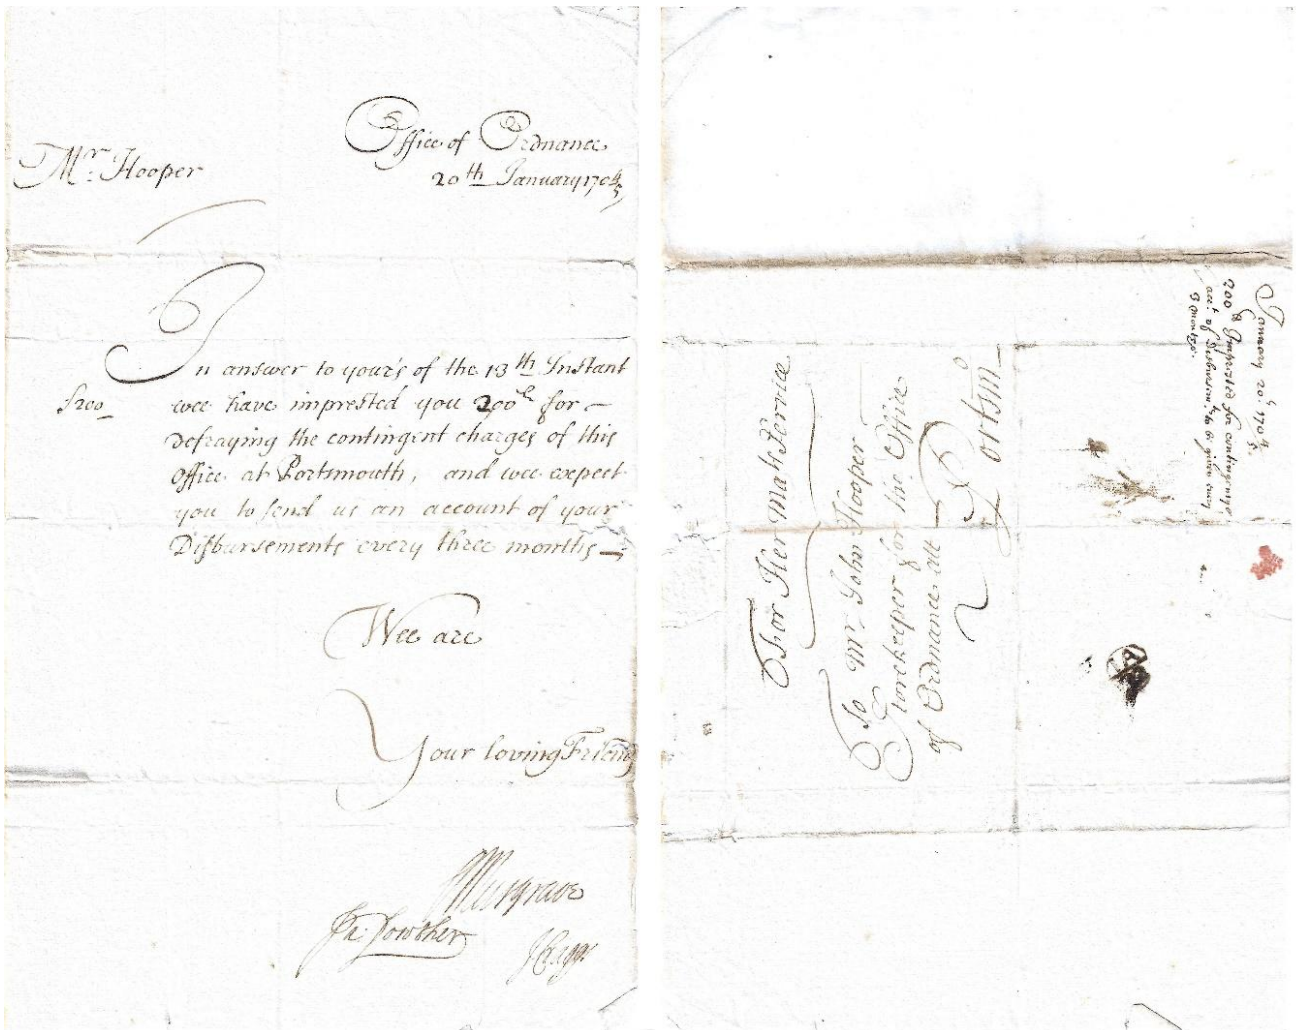 Office of Ordnance
Mr. Hooper
20th January 170 4/5
In answer to your's of the 13th Instant
£200
wee have imprested you 200l for
defraying the contingent charges of this
Office at Portsmouth, and wee expect
you to send us an account of your
Disbursements every three months
Wee are
Your loving Friends
Musgrave
Ja: Lowther
JCraggs
For Her Maties Service
To Mr. John Hooper
Storekeeper for the Office
of Ordnance att
Portsmo
January 20th 170 4/5
200l Imprested for contingencys
acct. of disburssmts. to be given every
3 months.